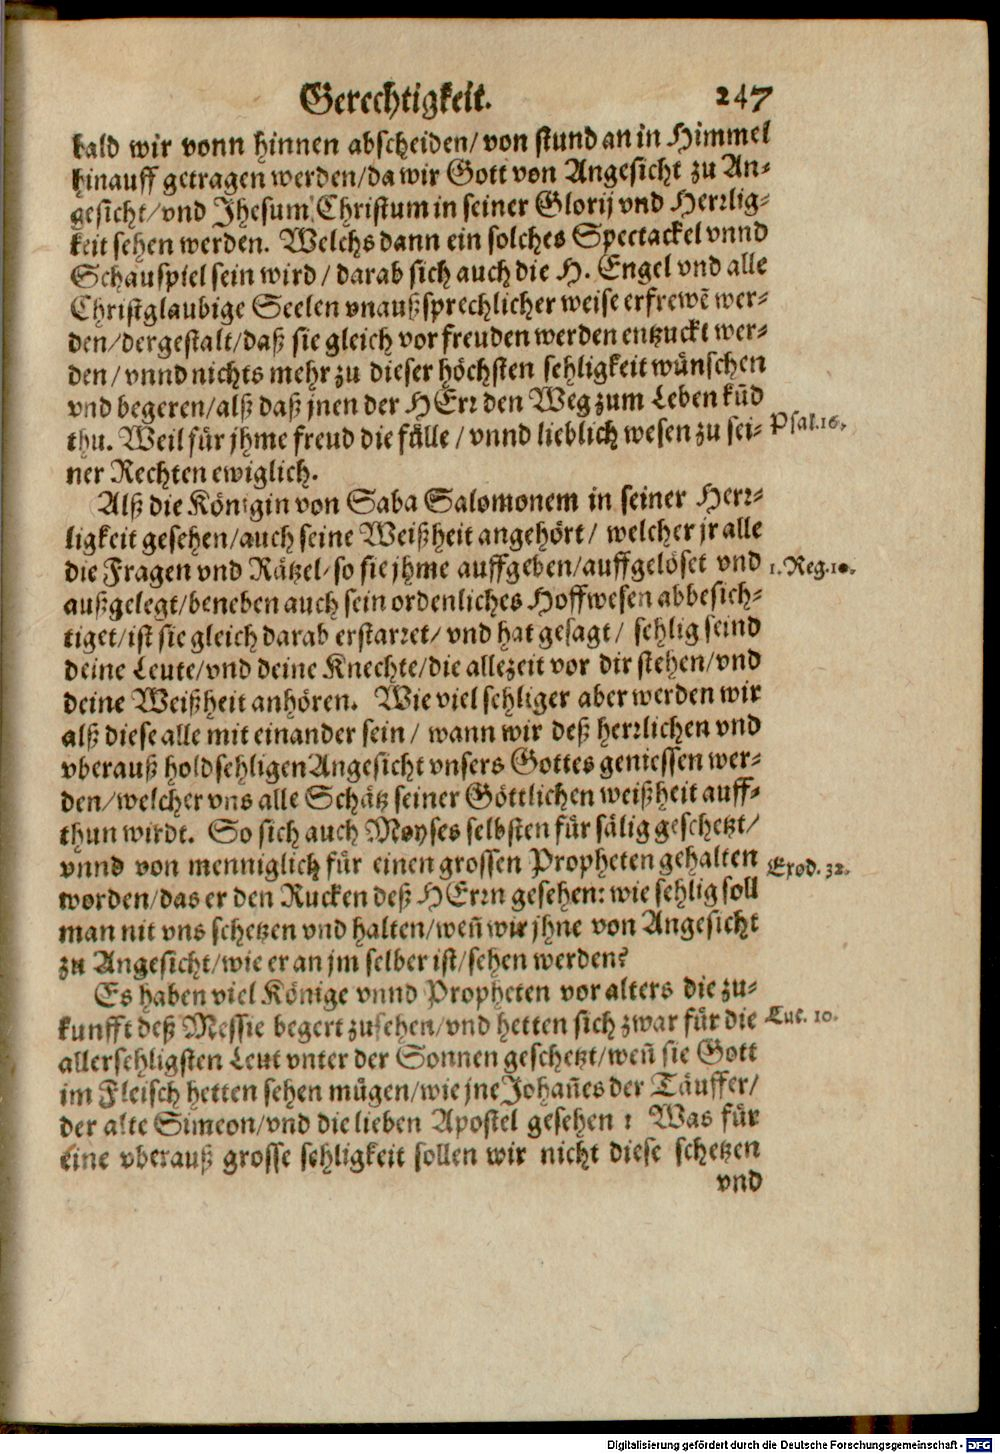 Gerechtigkeit. 247
bald wir vonn hinnen abscheiden/ von stund an in Himmel
hinauff getragen werden/ da wir Gott von Angesicht zu An-
gesicht/ vnd Jhesum Christum in seiner Glorij vnd Herrlig-
keit sehen werden. Welchs dann ein solches Spectackel vnnd
Schauspiel sein wird/ darab sich auch die H. Engel vnd alle
Christglaubige Seelen vnaußsprechlicher weise erfrewē wer-
den/ dergestalt/ daß sie gleich vor freuden werden entzuckt wer-
den/ vnnd nichts mehr zu dieser höchsten sehligkeit wünschen
vnd begeren/ alß daß jnen der HErr den Weg zum Leben kūd
thu. Weil für jhme freud die fülle/ vnnd lieblich wesen zu sei- Psal.16.
ner Rechten ewiglich.
Alß die Königin von Saba Salomonem in seiner Herr-
ligkeit gesehen/ auch seine Weißheit angehört/ welcher jr alle
die Fragen vnd Rätzel/ so sie jhme auffgeben/ auffgelöset vnd 1. Reg.10.
außgelegt/ beneben auch sein ordenliches Hoffwesen abbesich-
tiget/ ist sie gleich darab erstarret/ vnd hat gesagt/ sehlig seind
deine Leute/ vnd deine Knechte/ die allezeit vor dir stehen/ vnd
deine Weißheit anhören. Wie viel sehliger aber werden wir
alß diese alle mit einander sein/ wann wir deß herrlichen vnd
vberauß holdsehligen Angesicht vnsers Gottes geniessen wer-
den/ welcher vns alle Schätz seiner Göttlichen weißheit auff-
thun wirdt. So sich auch Moyses selbsten für sälig geschetzt/
vnnd von menniglich für einen grossen Propheten gehalten Exod. 32.
worden/ das er den Rucken deß HErrn gesehen: wie sehlig soll
man nit vns schetzen vnd halten/ weñ wir jhne von Angesicht
zu Angesicht/ wie er an jm selber ist/ sehen werden?
Es haben viel Könige vnnd Propheten vor alters die zu-
kunfft deß Messie begert zusehen/ vnd hetten sich zwar für die Luc. 10.
allersehligsten Leut vnter der Sonnen geschetzt/ weñ sie Gott
im Fleisch hetten sehen mügen/ wie jne Johañes der Täuffer/
der alte Simeon/ vnd die lieben Apostel gesehen: Was für
eine vberauß grosse sehligkeit sollen wir nicht diese schetzen
vnd
Digitalisierung gefördert durch die Deutsche Forschungsgemeinschaft - DFG